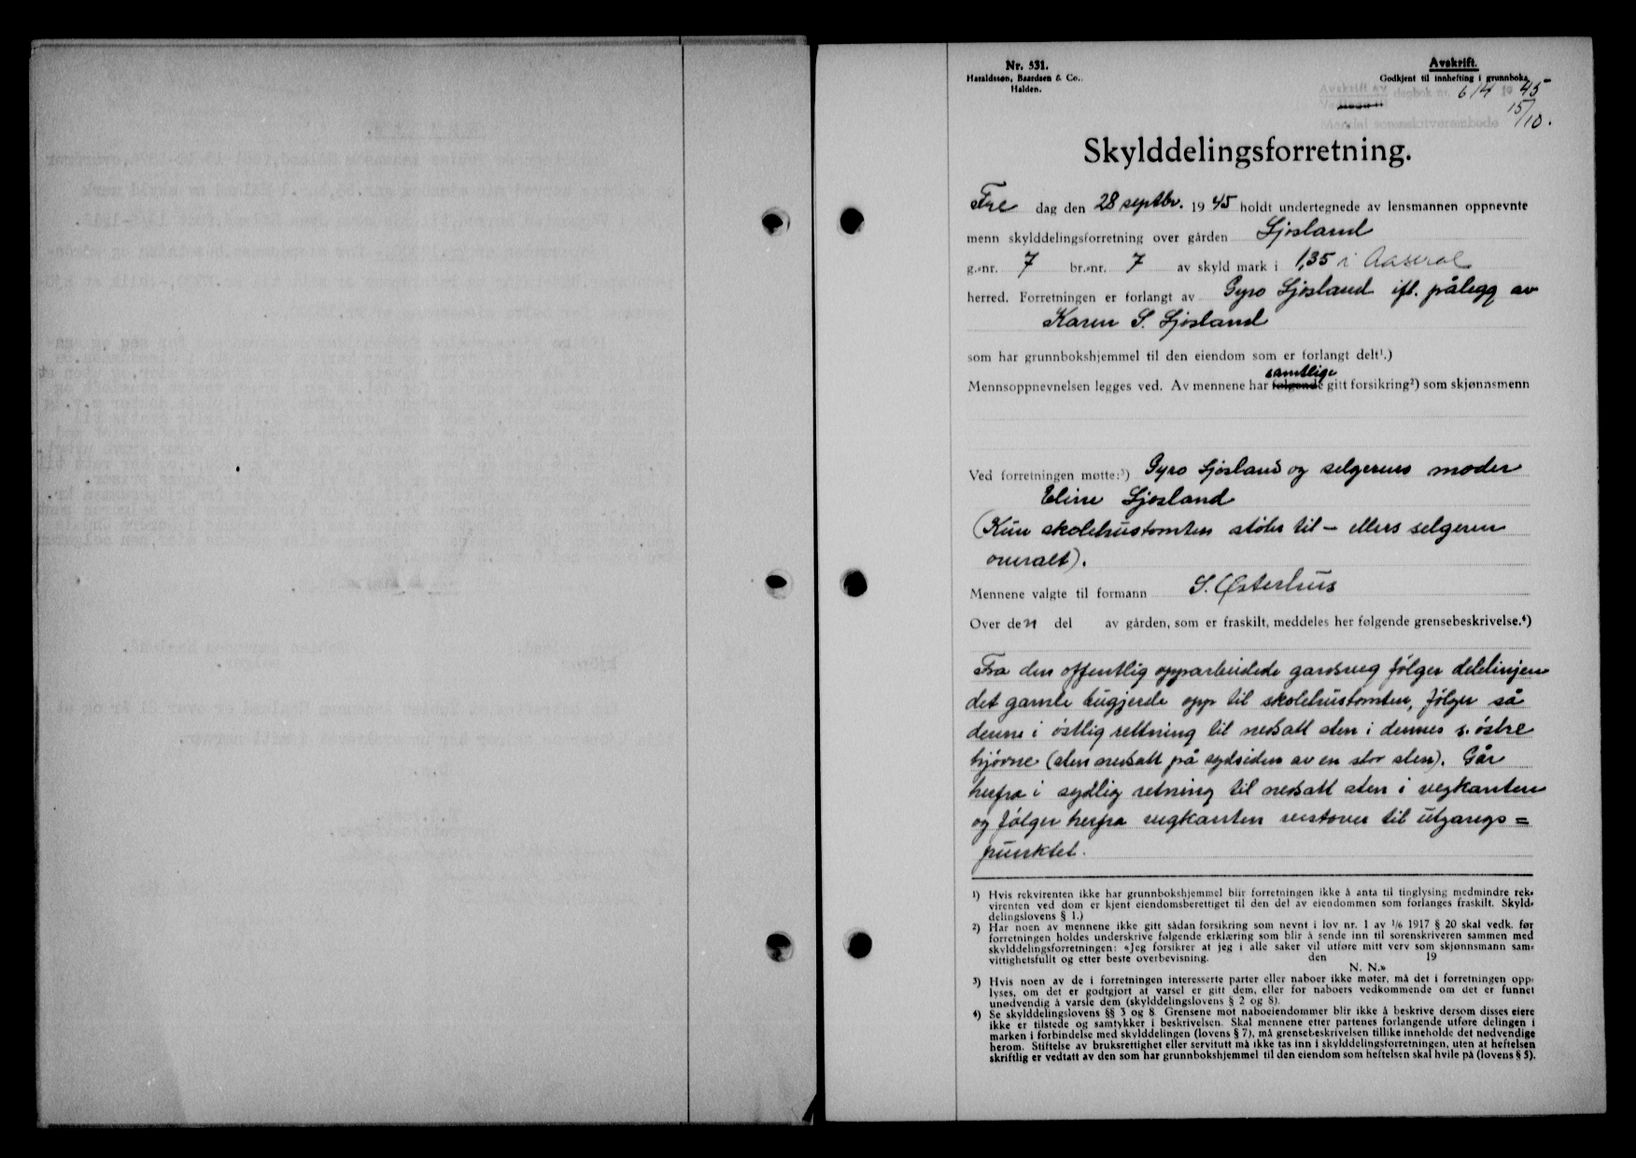 Nr. 531.
Haraldssøn, Baardsen & Co..
Halden.
Avskrift.
Godkjent til innhefting i grunnboka
Avskrift av dagbok nr. 614 1945
15/10.
Mandal sorenskriverembede
Skylddelingsforretning.
Fre dag den 28 septbr. 1945 holdt undertegnede av lensmannen oppnevnte
menn skylddelingsforretning over gården Ljosland
g.-nr. 7 br.-nr. 7 av skyld mark i 1,35 i Aaseral
herred. Forretningen er forlangt av Gyro Ljosland ifl. pålegg av
Karen S. Ljosland
som har grunnbokshjemmel til den eiendom som er forlangt delt¹.)
samtlige
Mennsoppnevnelsen legges ved. Av mennene har følgende gitt forsikring²) som skjønnsmenn
Ved forretningen møtte:³) Gyro Ljosland og selgerens moder
Eline Ljosland
(Kun skolehustomten støter til – ellers selgeren
overalt).
Mennene valgte til formann S. Østerhus
Over den del av gården, som er fraskilt, meddeles her følgende grensebeskrivelse.⁴)
Fra den offentlig opparbeidede gardsveg følger delelinjen
det gamle bugjerde opp til skolehustomten, følger så
denne i østlig rettning til nedsatt sten i dennes s. østre
hjørne (sten nedsatt på sydsiden av en stor sten). Går
herfra i sydlig retning til nedsatt sten i vegkanten
og følger herfra vegkanten vestover til utgangs=
punktet.
¹) Hvis rekvirenten ikke har grunnbokshjemmel blir forretningen ikke å anta til tinglysing medmindre rek-
virenten ved dom er kjent eiendomsberettiget til den del av eiendommen som forlanges fraskilt. Skyld-
delingslovens § 1.)
²) Har noen av mennene ikke gitt sådan forsikring som nevnt i lov nr. 1 av ¹/₆ 1917 § 20 skal vedk. før
forretningen holdes underskrive følgende erklæring som blir å sende inn til sorenskriveren sammen med
skylddelingsforretningen: «Jeg forsikrer at jeg i alle saker vil utføre mitt verv som skjønnsmann sam-
vittighetsfullt og etter beste overbevisning. den 19
N. N.»
³) Hvis noen av de i forretningen interesserte parter eller naboer ikke møter, må det i forretningen opp-
lyses, om det er godtgjort at varsel er gitt dem, eller for naboers vedkommende om det er funnet
unødvendig å varsle dem (skylddelingslovens § 2 og 8).
⁴) Se skylddelingslovens §§ 3 og 8. Grensene mot naboeiendommer blir ikke å beskrive dersom disses eiere
ikke er tilstede og samtykker i beskrivelsen. Skal mennene etter partenes forlangende utføre delingen i
marken i forbindelse med skylddelingen (lovens § 7), må grensebeskrivelsen tillike inneholde det nødvendige
herom. Stiftelse av bruksrettighet eller servitutt må ikke tas inn i skylddelingsforretningen, uten at heftelsen
skriftlig er vedtatt av den som har grunnbokshjemmel til den eiendom som heftelsen skal hvile på (lovens § 5).